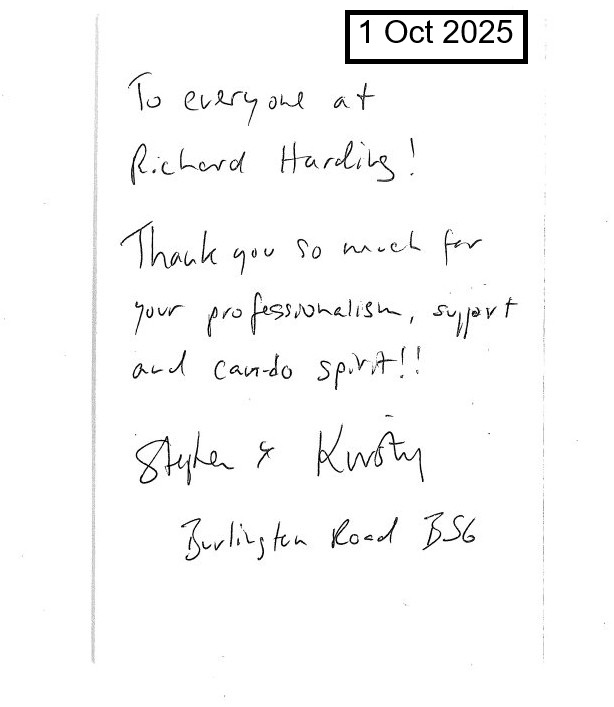 1 Oct 2025
To everyone at
Richard Harding!
Thank you so much for
your professionalism, support
and can-do spirit!!
Stephen & Kirsty
Burlington Road BS6